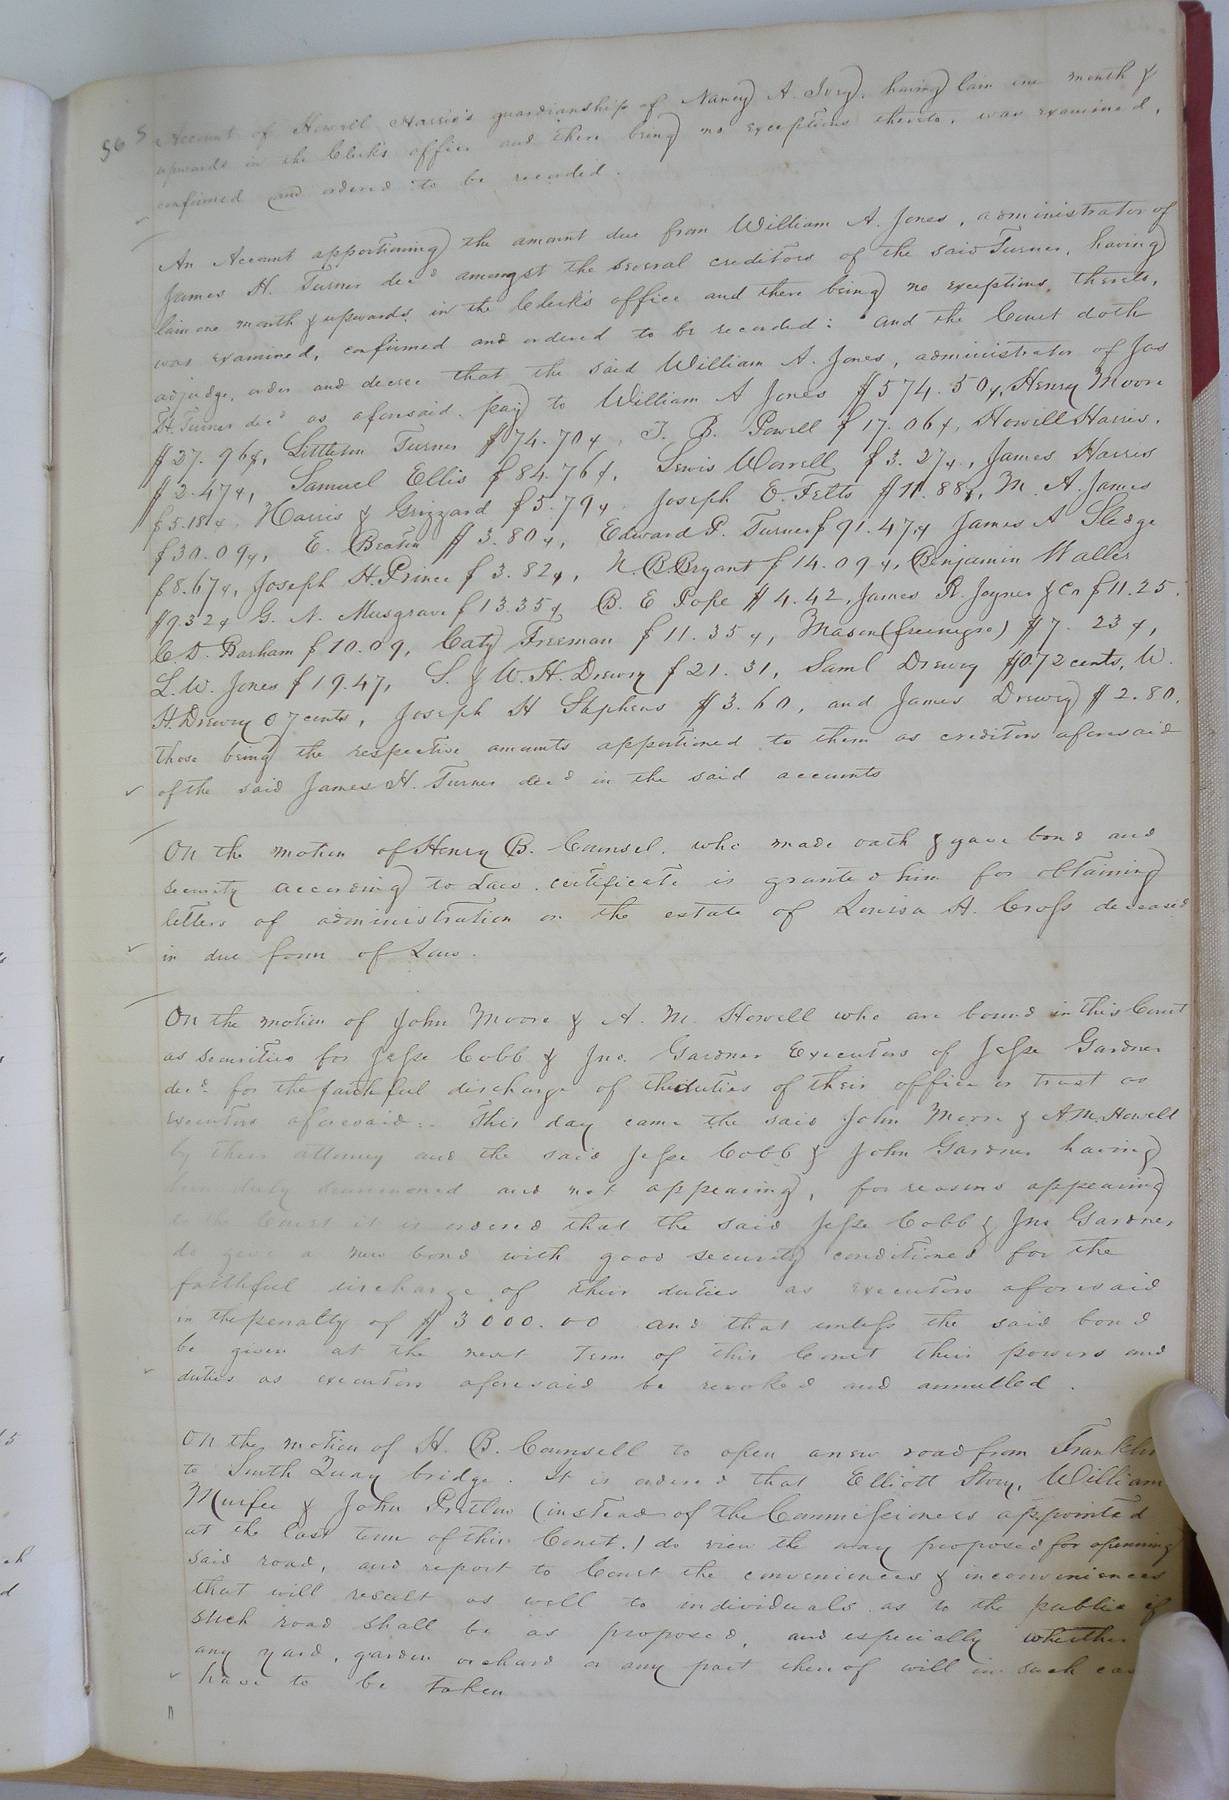 565
Account of Howell Harris's guardianship of Nancy A. Ivey, having lain one month &
upwards in the Clerk's office and there being no exceptions thereto, was examined,
confirmed and ordered to be recorded.
An Account apportioning the amount due from William A. Jones, administrator of
James H. Turner decd amongst the several creditors of the said Turner, having
lain one month & upwards in the Clerk's office and there being no exceptions thereto,
was examined, confirmed and ordered to be recorded: and the Court doth
adjudge, order and decree that the said William A. Jones, administrator of Jas
H. Turner decd as aforesaid pay to William A Jones $574.50, Henry Moore
$27.96, Littleton Turner $74.70, J. B. Powell $17.06, Howell Harris,
$2.47, Samuel Ellis $84.76, Lewis Worrell $3.27, James Harris
$5.18, Harris & Grizzard $5.79, Joseph E. Felts $11.88, M. A. James
$30.09, E. Beaton $3.80, Edward P. Turner $91.47, James A Sledge
$8.67, Joseph H. Prince $3.82, N. B. Bryant $14.09, Benjamin Waller
$9.32 G. N. Musgrave $13.35, B. E Pope $4.42, James R. Joyner & Co $11.25.
C. D. Barham $10.09, Caty Freeman $11.35, Mason (free negro) $7.23,
L. W. Jones $19.47, S. & W. H. Drewry $21.31, Saml Drewry $0.72 cents, W.
H. Drewry 07 cents, Joseph H Stephens $3.60, and James Drewry $2.80.
those being the respective amounts apportioned to them as creditors aforesaid
of the said James H. Turner decd in the said accounts
On the motion of Henry B. Counsel, who made oath & gave bond and
security according to Law certificate is granted him for obtaining
letters of administration on the estate of Louisa A. Cross deceased
in due form of Law.
On the motion of John Moore & A. M. Howell who are bound in this Court
as securities for Jesse Cobb & Jno. Gardner Executors of Jesse Gardner
decd for the faithful discharge of the duties of their office or trust as
executors aforesaid. This day came the said John Moore & A M. Howell
by their attorney and the said Jesse Cobb & John Gardner having
been duly summoned and not appearing, for reasons appearing
to the Court it is ordered that the said Jesse Cobb & Jno Gardner
do give a new bond with good security conditioned for the
faithful discharge of their duties as executors aforesaid
in the penalty of $3000.00 and that unless the said bond
be given at the next Term of this Court their powers and
duties as executors aforesaid be revoked and annulled.
On the motion of H. B. Counsell to open a new road from Franklin
to South Quay bridge. It is ordered that Elliott Story, William
Murfee & John Pretlow (instead of the Commissioners appointed
at the last term of this Court.) do view the way proposed for opening
said road, and report to Court the conveniences & inconveniences
that will result as well to individuals as to the public if
such road shall be as proposed, and especially whether
any yard, garden orchard or any part thereof will in such case
have to be taken